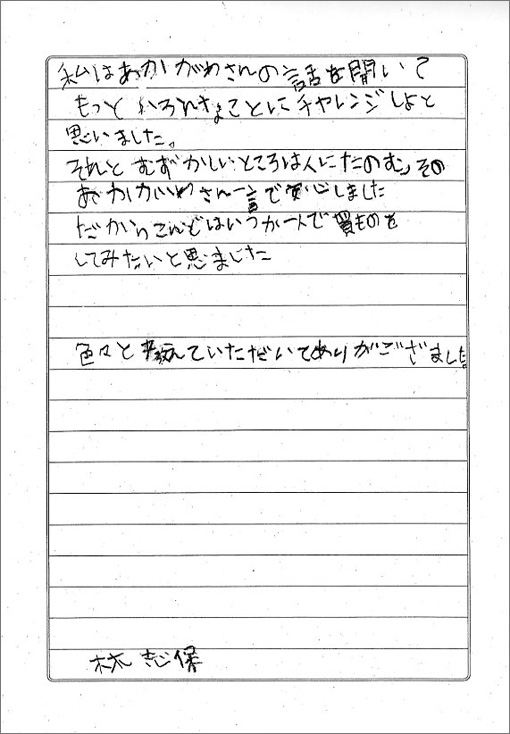 私はあかがわさんの話を聞いて
もっといろんなことにチャレンジしよと
思いました。
それと むずかしいところは人にたのむ」その
あかがわさん一言で安心しました
だからこんどはいつか一人で買ものを
してみたいと思ました
色々と教えていただいてありがござました。
林 志保